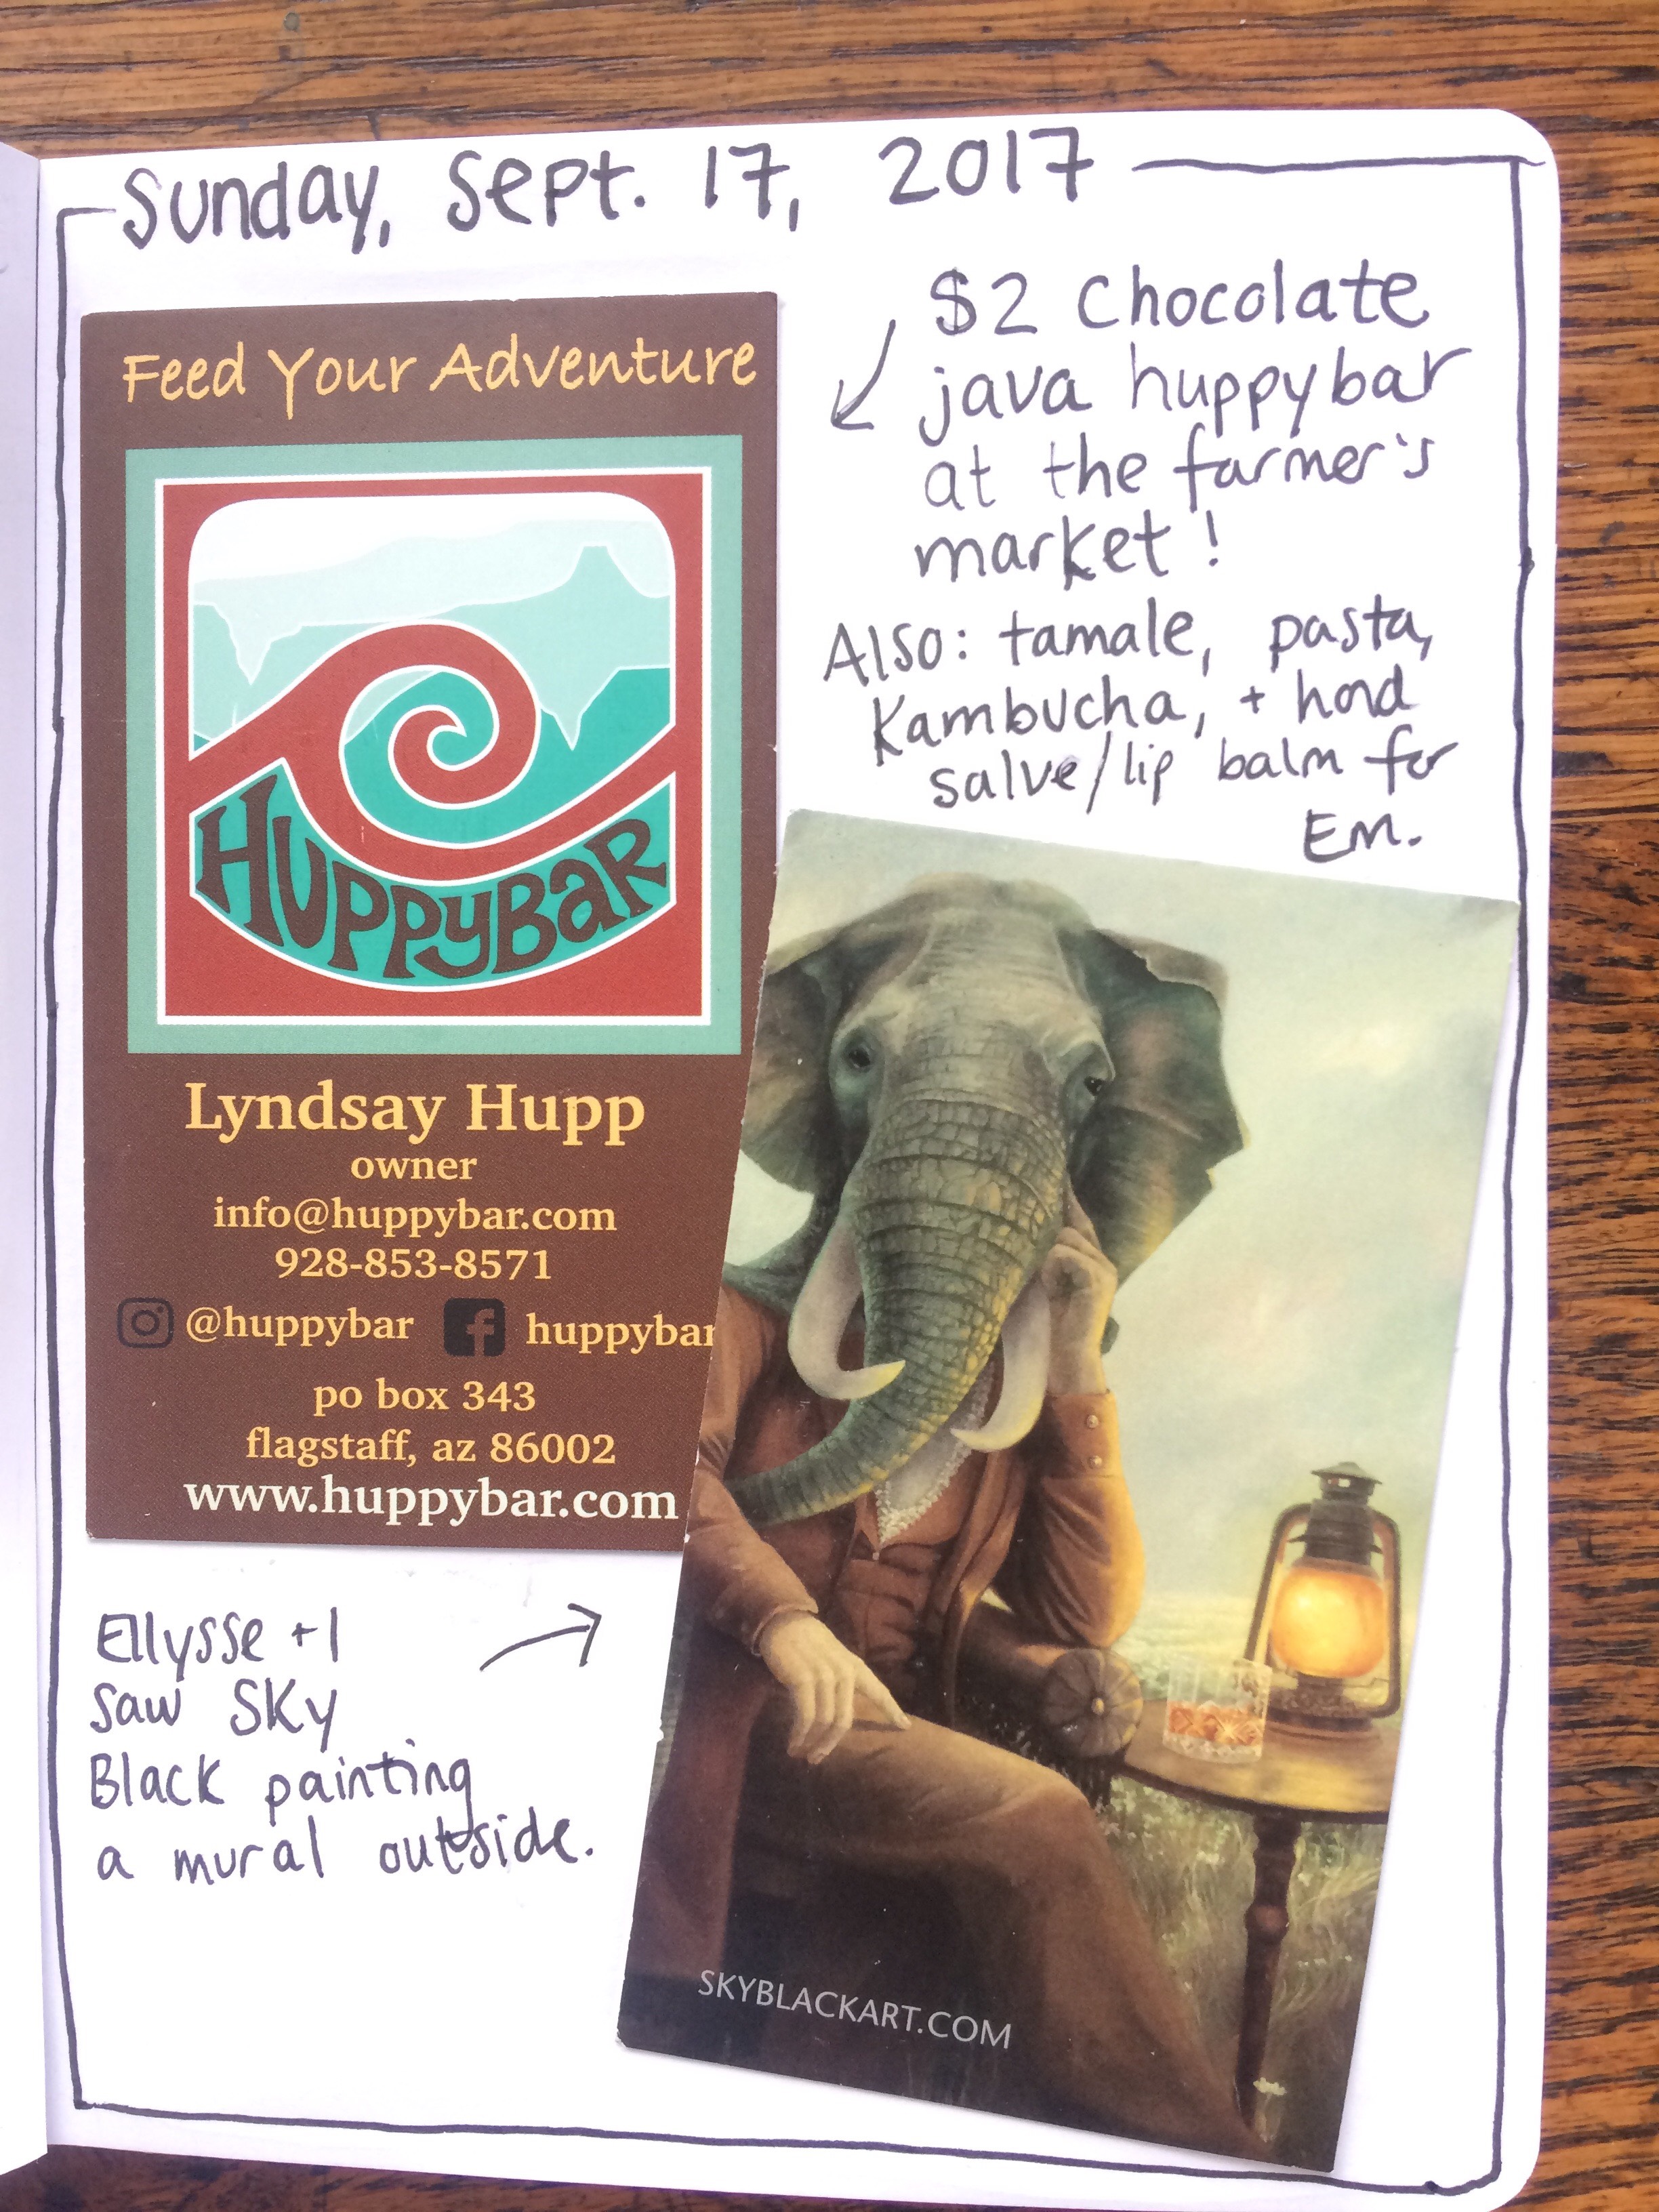 Sunday, Sept. 17, 2017
$2 Chocolate
java huppybar
at the farmer's
market!
Also: tamale, pasta,
Kambucha, + hand
salve/lip balm for
Em.
Feed Your Adventure
HUPPYBAR
Lyndsay Hupp
owner
info@huppybar.com
928-853-8571
@huppybar huppybar
po box 343
flagstaff, az 86002
www.huppybar.com
Ellysse + I
saw Sky
Black painting
a mural outside.
SKYBLACKART.COM